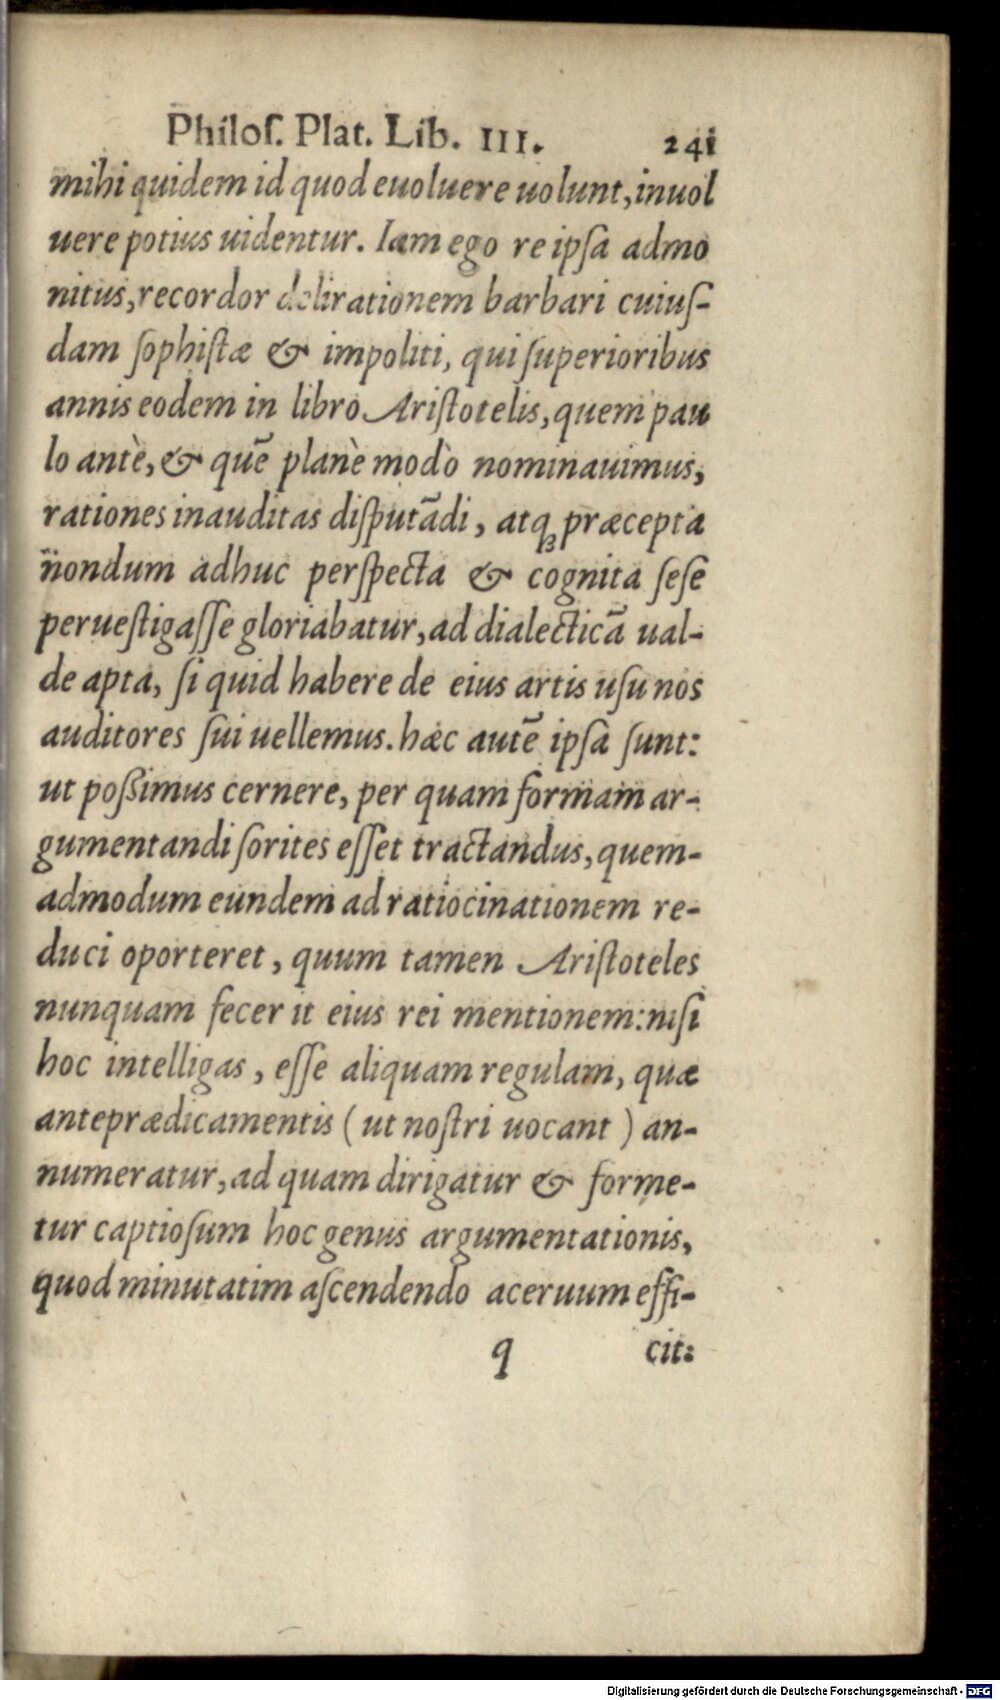 Philoſ. Plat. Lib. III. 241
mihi quidem id quod euoluere uolunt, inuol
uere potius uidentur. Iam ego re ipſa admo
nitus, recordor delirationem barbari cuiuſ-
dam ſophiſtæ & impoliti, qui ſuperioribus
annis eodem in libro Ariſtotelis, quem pau
lo antè, & quē planè modò nominauimus,
rationes inauditas diſputādi, atqꝫ præcepta
nondum adhuc perſpecta & cognita ſeſe
perueſtigaſſe gloriabatur, ad dialecticā ual-
de apta, ſi quid habere de eius artis uſu nos
auditores ſui uellemus. hæc autē ipſa ſunt:
ut poßimus cernere, per quam formam ar-
gumentandi ſorites eſſet tractandus, quem-
admodum eundem ad ratiocinationem re-
duci oporteret, quum tamen Ariſtoteles
nunquam fecerit eius rei mentionem: niſi
hoc intelligas, eſſe aliquam regulam, quæ
anteprædicamentis (ut noſtri uocant) an-
numeratur, ad quam dirigatur & forme-
tur captioſum hoc genus argumentationis,
quod minutatim aſcendendo aceruum effi-
q cit:
Digitalisierung gefördert durch die Deutsche Forschungsgemeinschaft - DFG